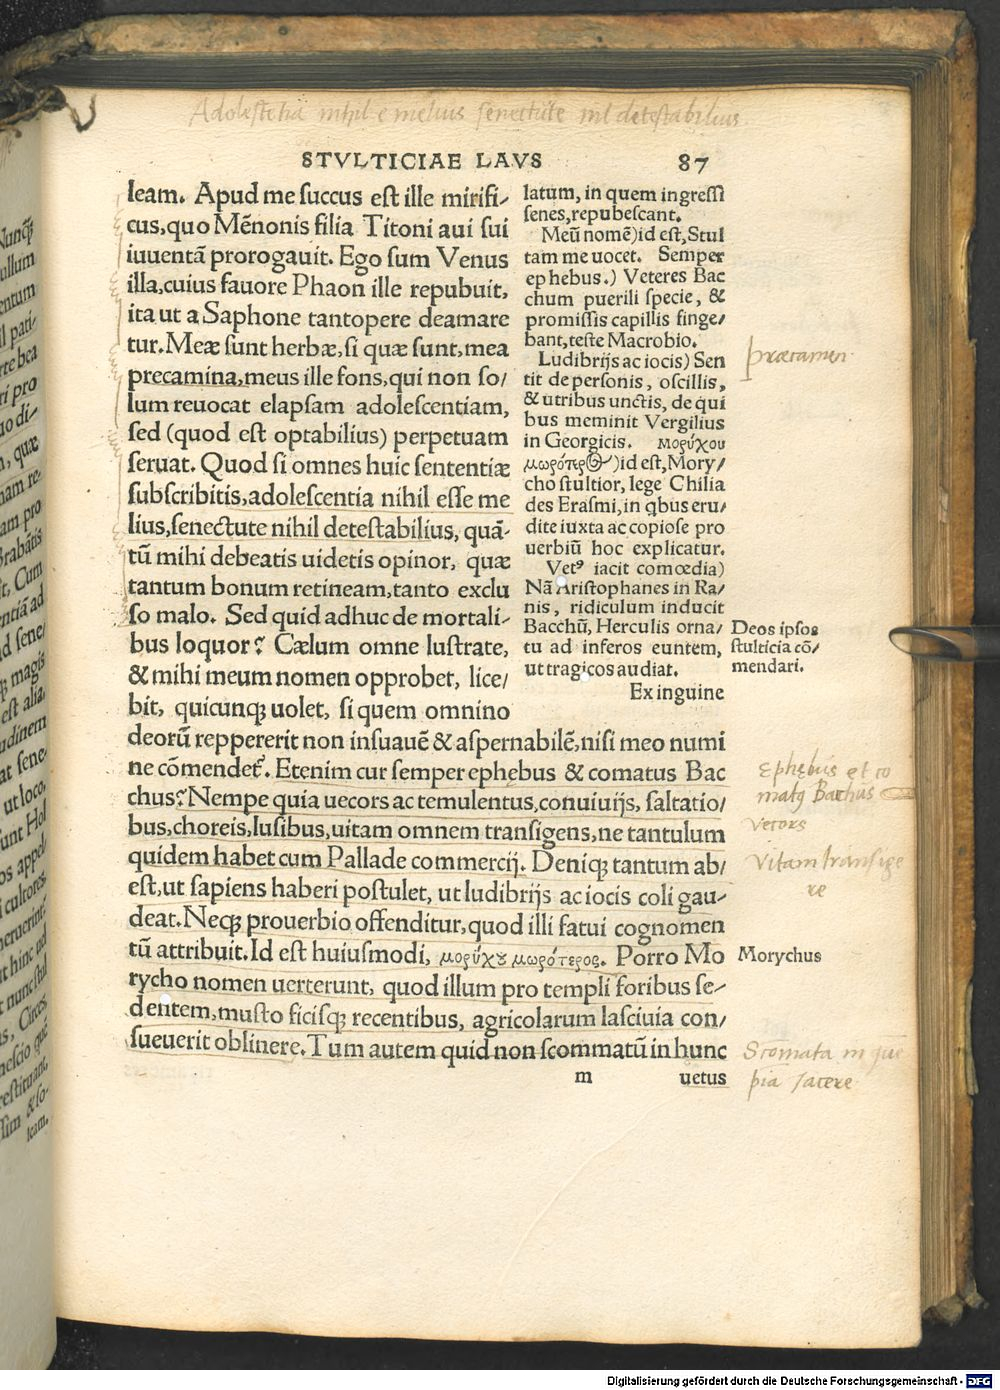 Adolescētia nihil ē melius senectute nil detestabilius.
STVLTICIAE LAVS 87
leam. Apud me succus est ille mirifi-
cus, quo Mēnonis filia Titoni aui sui
iuuentā prorogauit. Ego sum Venus
illa, cuius fauore Phaon ille repubuit,
ita ut a Saphone tantopere deamare
tur. Meæ sunt herbæ, si quæ sunt, mea
precamina, meus ille fons, qui non so/
lum reuocat elapsam adolescentiam,
sed (quod est optabilius) perpetuam
seruat. Quod si omnes huic sententiæ
subscribitis, adolescentia nihil esse me
lius, senectute nihil detestabilius, quā-
tū mihi debeatis uidetis opinor, quæ
tantum bonum retineam, tanto exclu
so malo. Sed quid adhuc de mortali-
bus loquor? Cælum omne lustrate,
& mihi meum nomen opprobet, lice/
bit, quicunqꝫ uolet, si quem omnino
deorū reppererit non insuauē & aspernabilē, nisi meo numi
ne cōmendet᷑. Etenim cur semper ephębus & comatus Bac
chus? Nempe quia uecors ac temulentus, conuiuijs, saltatio/
bus, choreis, lusibus, uitam omnem transigens, ne tantulum
quidem habet cum Pallade commercij. Deniqꝫ tantum ab/
est, ut sapiens haberi postulet, ut ludibrijs ac iocis coli gau-
deat. Neqꝫ prouerbio offenditur, quod illi fatui cognomen
tū attribuit. Id est huiusmodi, μορύχȣ μωρότερος. Porro Mo
rycho nomen uerterunt, quod illum pro templi foribus se-
dentem, musto ficisqꝫ recentibus, agricolarum lasciuia con/
sueuerit oblinere. Tum autem quid non scommatū in hunc
m uetus
latum, in quem ingressi
senes, repubescant.
Meū nomē) id est, Stul
tam me uocet. Semper
ephebus.) Veteres Bac
chum puerili specie, &
promissis capillis finge/
bant, teste Macrobio.
Ludibrijs ac iocis) Sen
tit de personis, oscillis,
& utribus unctis, de qui
bus meminit Vergilius
in Georgicis. μορύχου
μωρότερος) id est, Mory/
cho stultior, lege Chilia
des Erasmi, in qbus eru/
dite iuxta ac copiose pro
uerbiū hoc explicatur.
Vetꝰ iacit comœdia)
Nā Aristophanes in Ra/
nis, ridiculum inducit
Bacchū, Herculis orna/
tu ad inferos euntem,
ut tragicos audiat.
Ex inguine
præcamen
Deos ipsos
stulticia cō/
mendari.
Ephębus et co
matꝰ Bachus
vecors
Vitam transige
re
Morychus
Scōmata in
iacere
Nunqꝫ
ullum
entum
il pati-
rte bea
ri pro
uo di-
n, quæ
nam re-
am pro
Brabātis
st, Cum
entiā ad
d sene/
magis
est alia,
udinem
at sene-
ut loco,
sunt Hol
os appel
i cultores,
hinc ad
s, Circes,
nescio quā
restituant,
ssim & so-
leam.
Digitalisierung gefördert durch die Deutsche Forschungsgemeinschaft - DFG